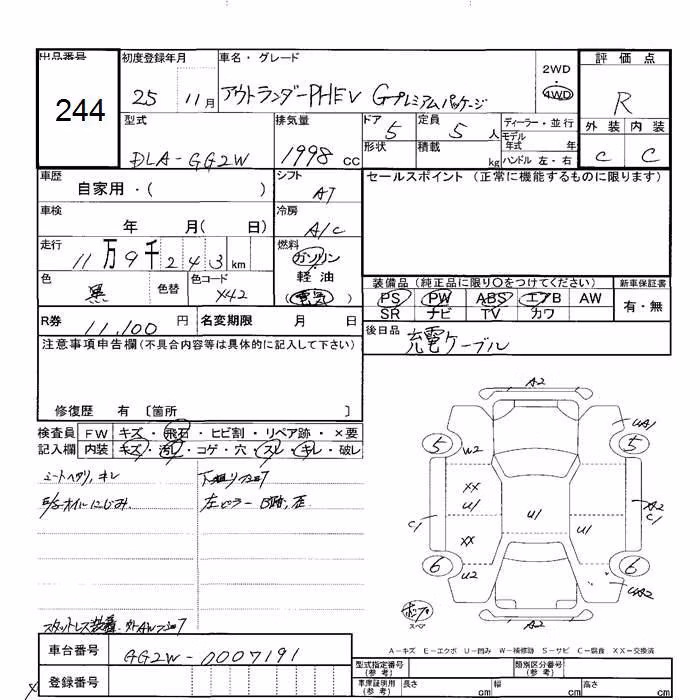 出品番号
244
初度登録年月
25 11月
車名・グレード
アウトランダーPHEV Gプレミアムパッケージ
2WD
・
4WD
評価点
R
外装 内装
C C
型式
DLA-GG2W
排気量
1998 cc
ドア
5
定員
5 人
形状
積載
kg
ディーラー・並行
モデル
年式 年
ハンドル 左・右
車歴
自家用・( )
シフト
AT
セールスポイント (正常に機能するものに限ります)
車検
年 月( 日)
冷房
A/C
走行
11万9千243km
燃料
ガソリン
軽油
電気
色
黒
色替
色コード
X42
装備品 (純正品に限り○をつけてください)
PS PW ABS エアB AW
SR ナビ TV カワ
新車保証書
有・無
R券
11,100 円
名変期限 月 日
後日品
充電ケーブル
注意事項申告欄(不具合内容等は具体的に記入して下さい)
修復歴 有 〔箇所 〕
検査員
記入欄
FW キズ・飛石・ヒビ割・リペア跡・×要
内装 キズ・汚レ・コゲ・穴・スレ・キレ・破レ
シートヘタリ、キレ
E/Gオイルにじみ
左ピラー
スタットレス装着
A2
UA1
5
W2
5
XX
U1
C1
U1
U1
A2
C1
XX
6
U2
6
UA2
ポンプ
スペア
A2
A-キズ E-エクボ U-凹み W-補修跡 S-サビ C-腐食 XX-交換済
車台番号
GG2W-0007191
登録番号
型式指定番号
(参考)
類別区分番号
(参考)
車庫証明用
(参考)
長さ cm
幅 cm
高さ cm